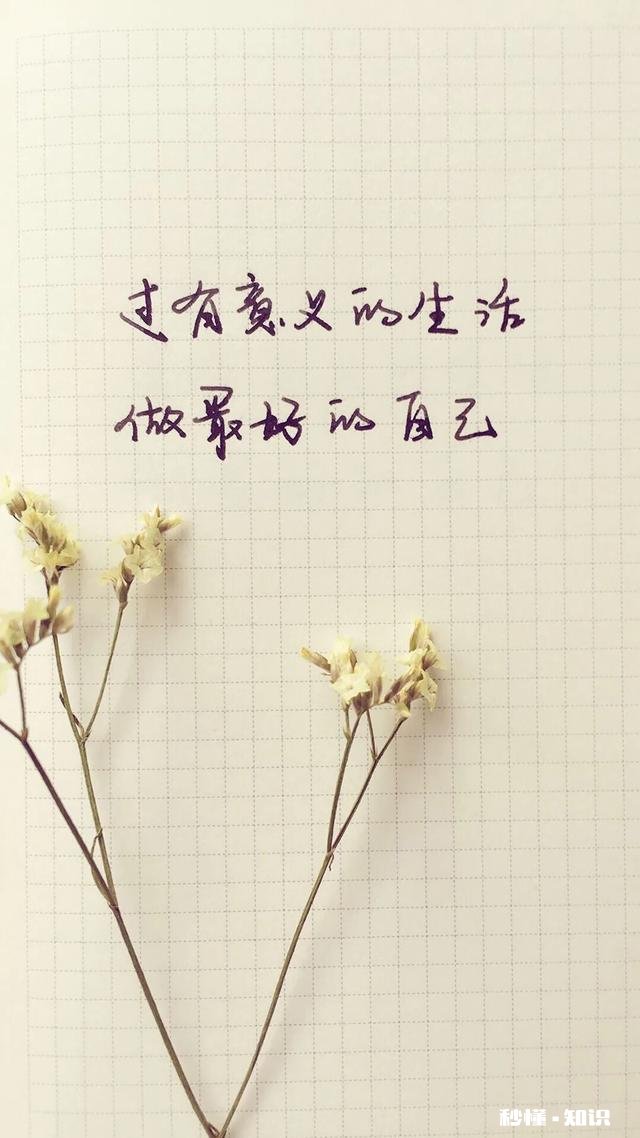 过有意义的生活
做最好的自己
秒懂·知识